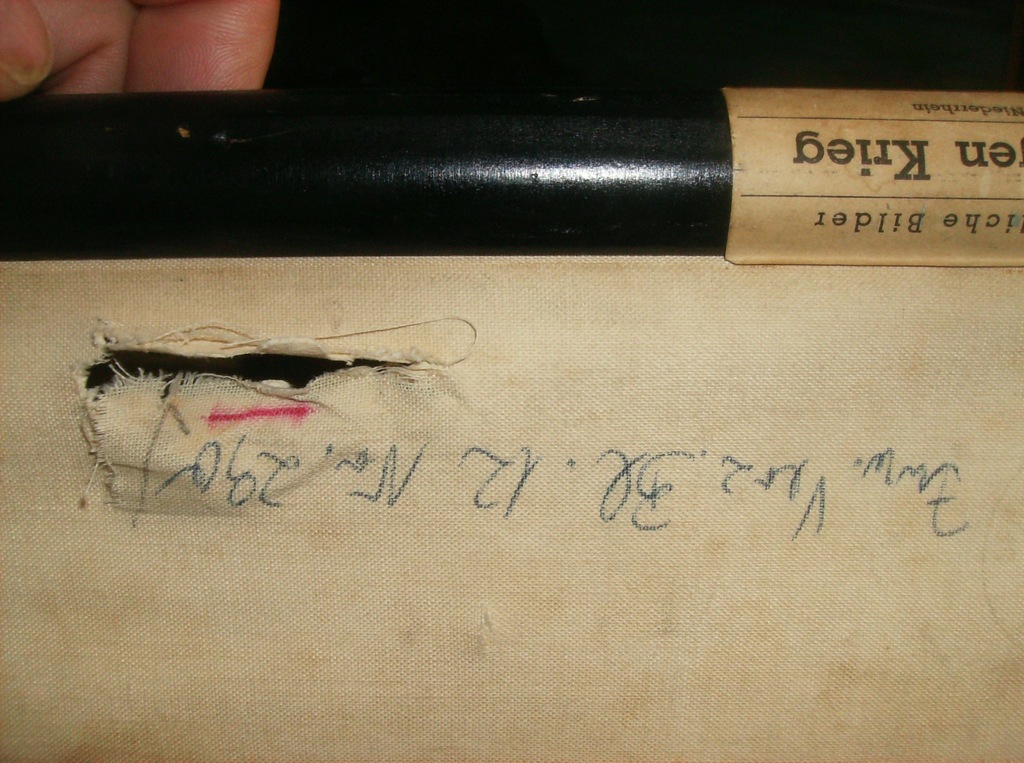 Inv. Verz. Bl. 12 Nr. 290
liche Bilder
gen Krieg
Niederrhein